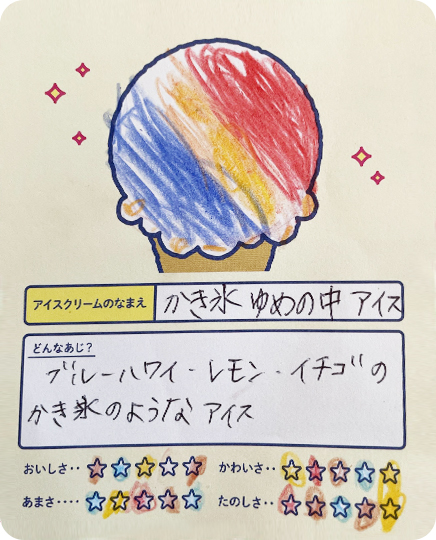 アイスクリームのなまえ
かき氷 ゆめの中 アイス
どんなあじ?
ブルーハワイ・レモン・イチゴの
かき氷のような アイス
おいしさ‥ ☆☆☆☆☆ かわいさ‥ ☆☆☆☆☆
あまさ‥‥ ☆☆☆☆☆ たのしさ‥ ☆☆☆☆☆